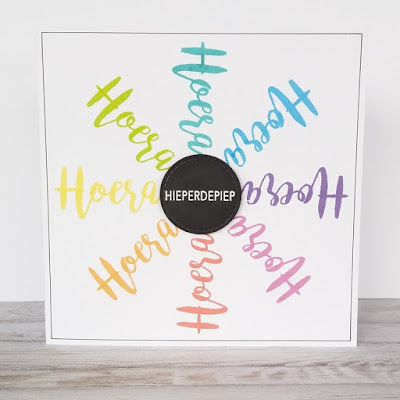 Hoera
Hoera
Hoera
Hoera
Hoera
Hoera
Hoera
Hoera
HIEPERDEPIEP